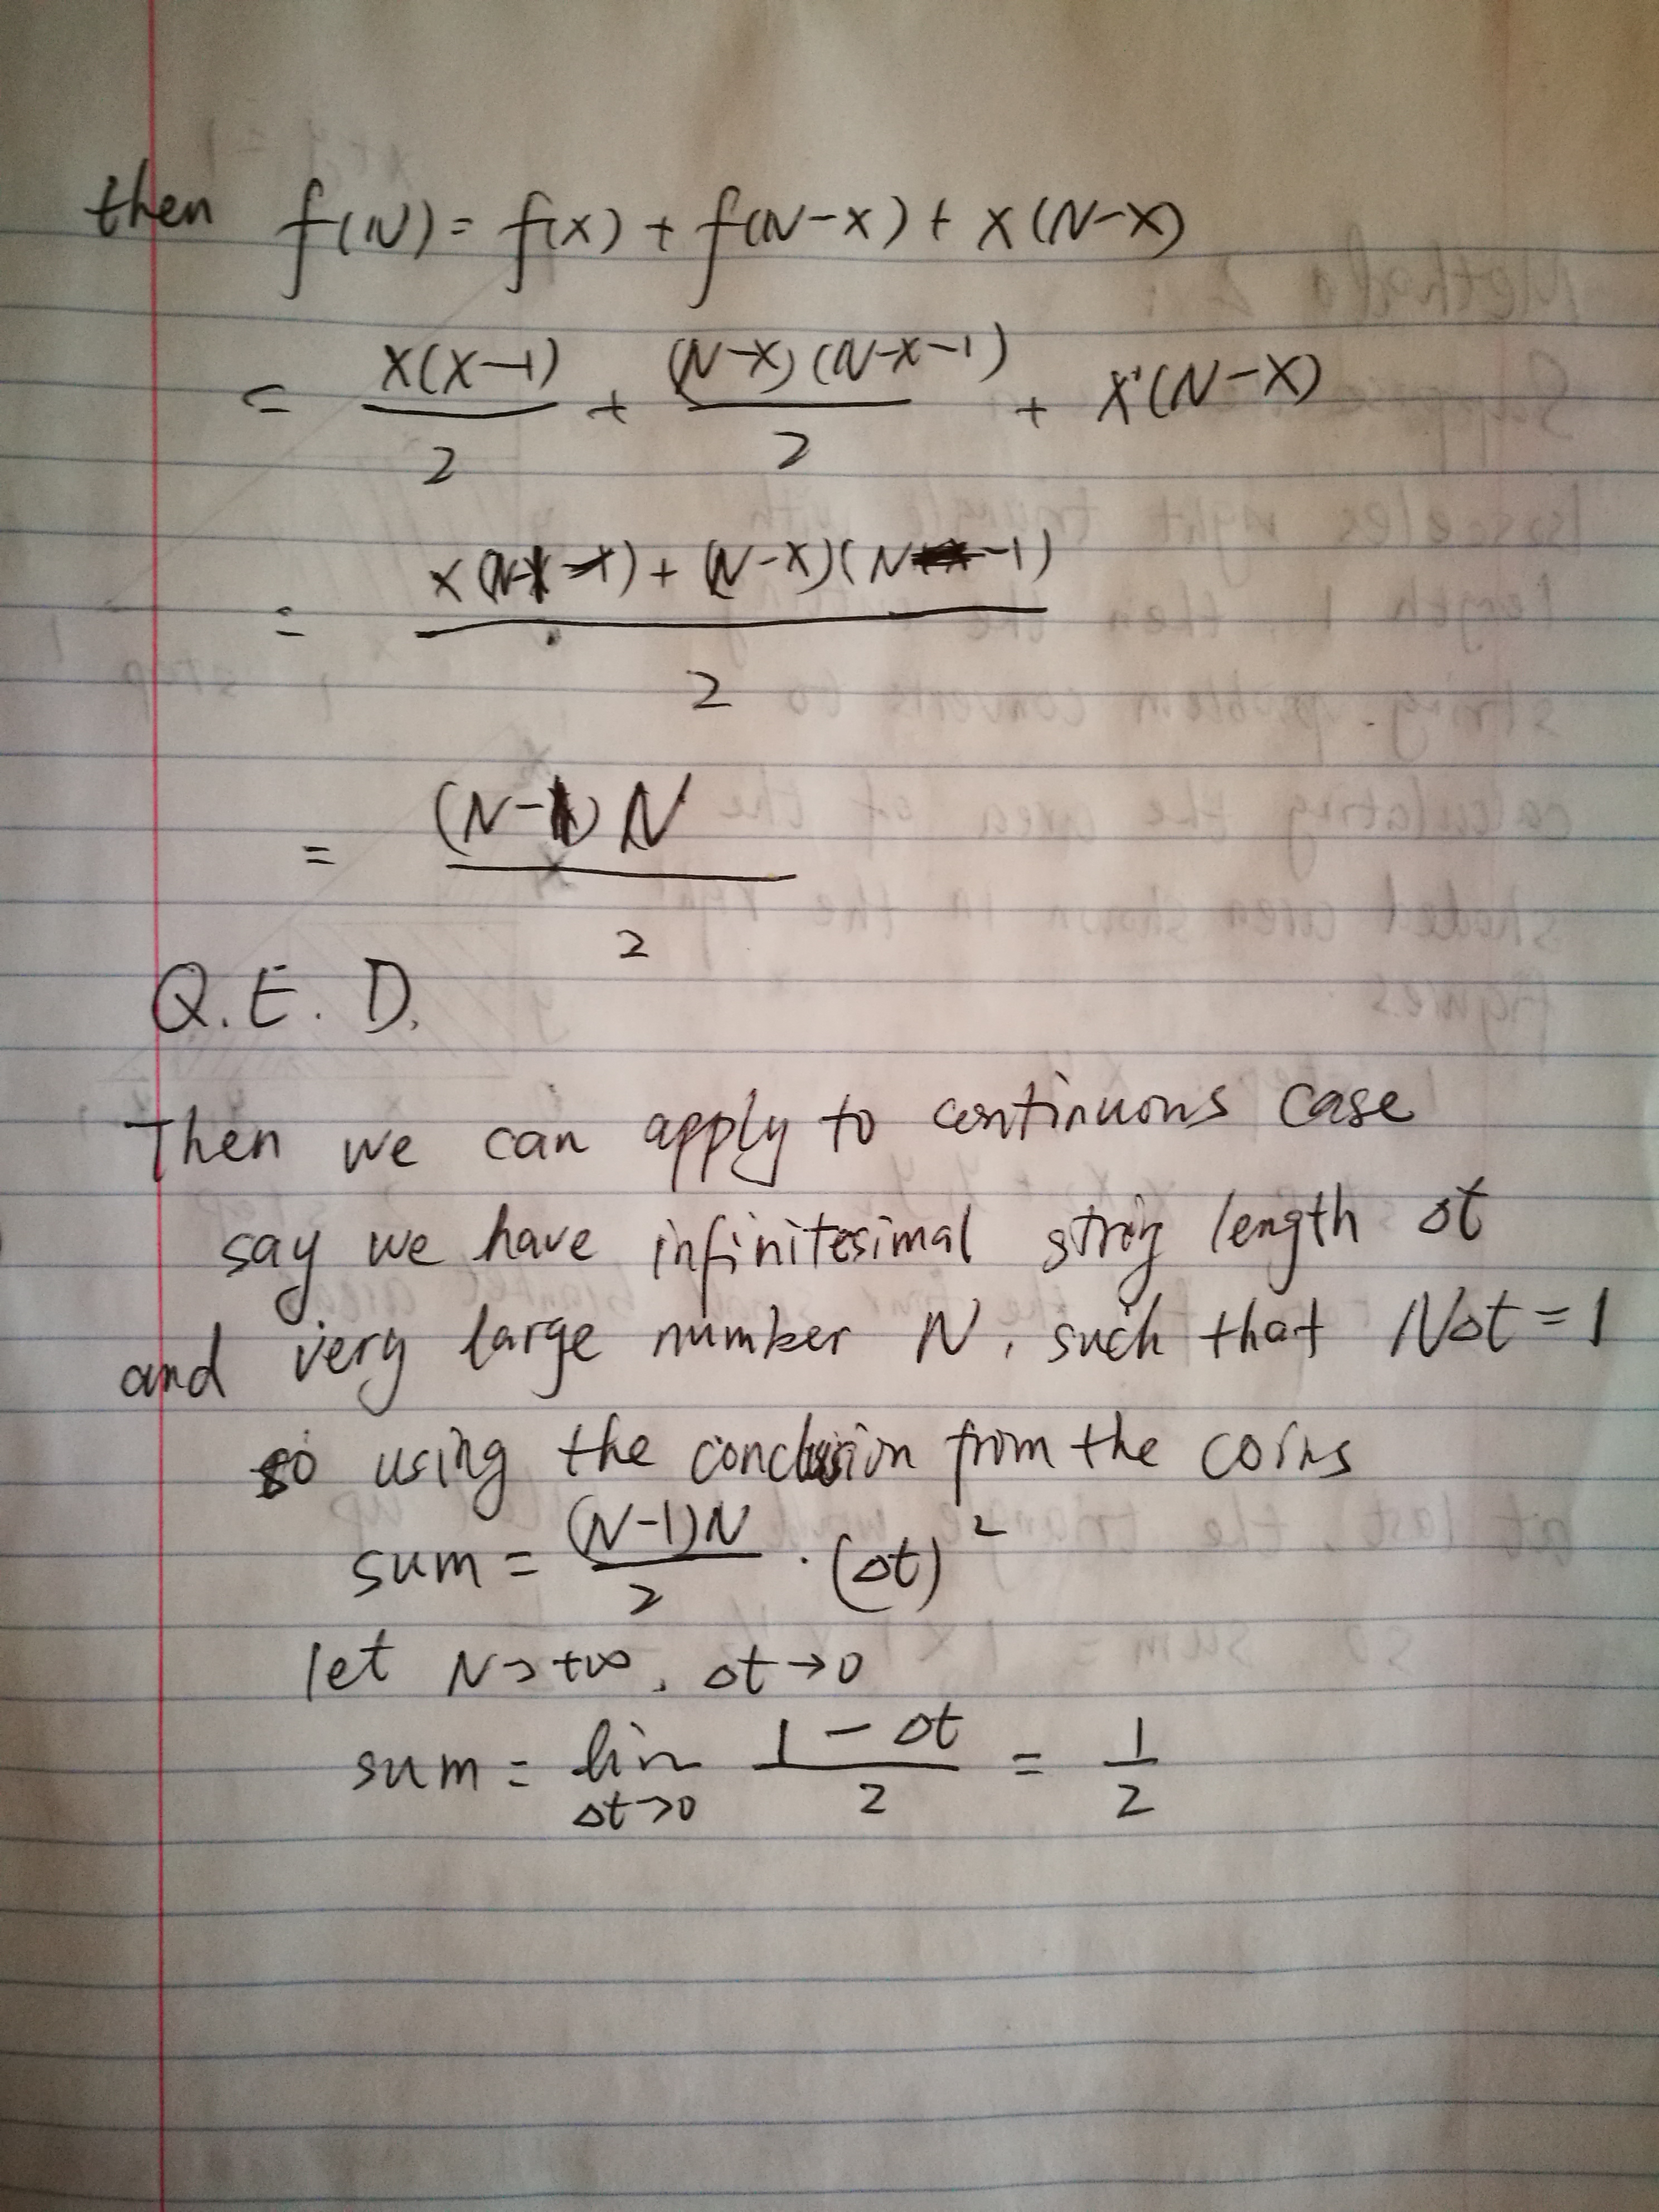 then f(N) = f(x) + f(N-x) + x(N-x)
= x(x-1)/2 + (N-x)(N-x-1)/2 + x(N-x)
= x(N-1) + (N-x)(N-1)/2
= (N-1)N/2
Q.E.D.
Then we can apply to continuous case
say we have infinitesimal string length Δt
and very large number N, such that NΔt = 1
so using the conclusion from the coins
sum = (N-1)N/2 · (Δt)²
let N→+∞, Δt→0
sum = lim Δt→0 1-Δt/2 = 1/2